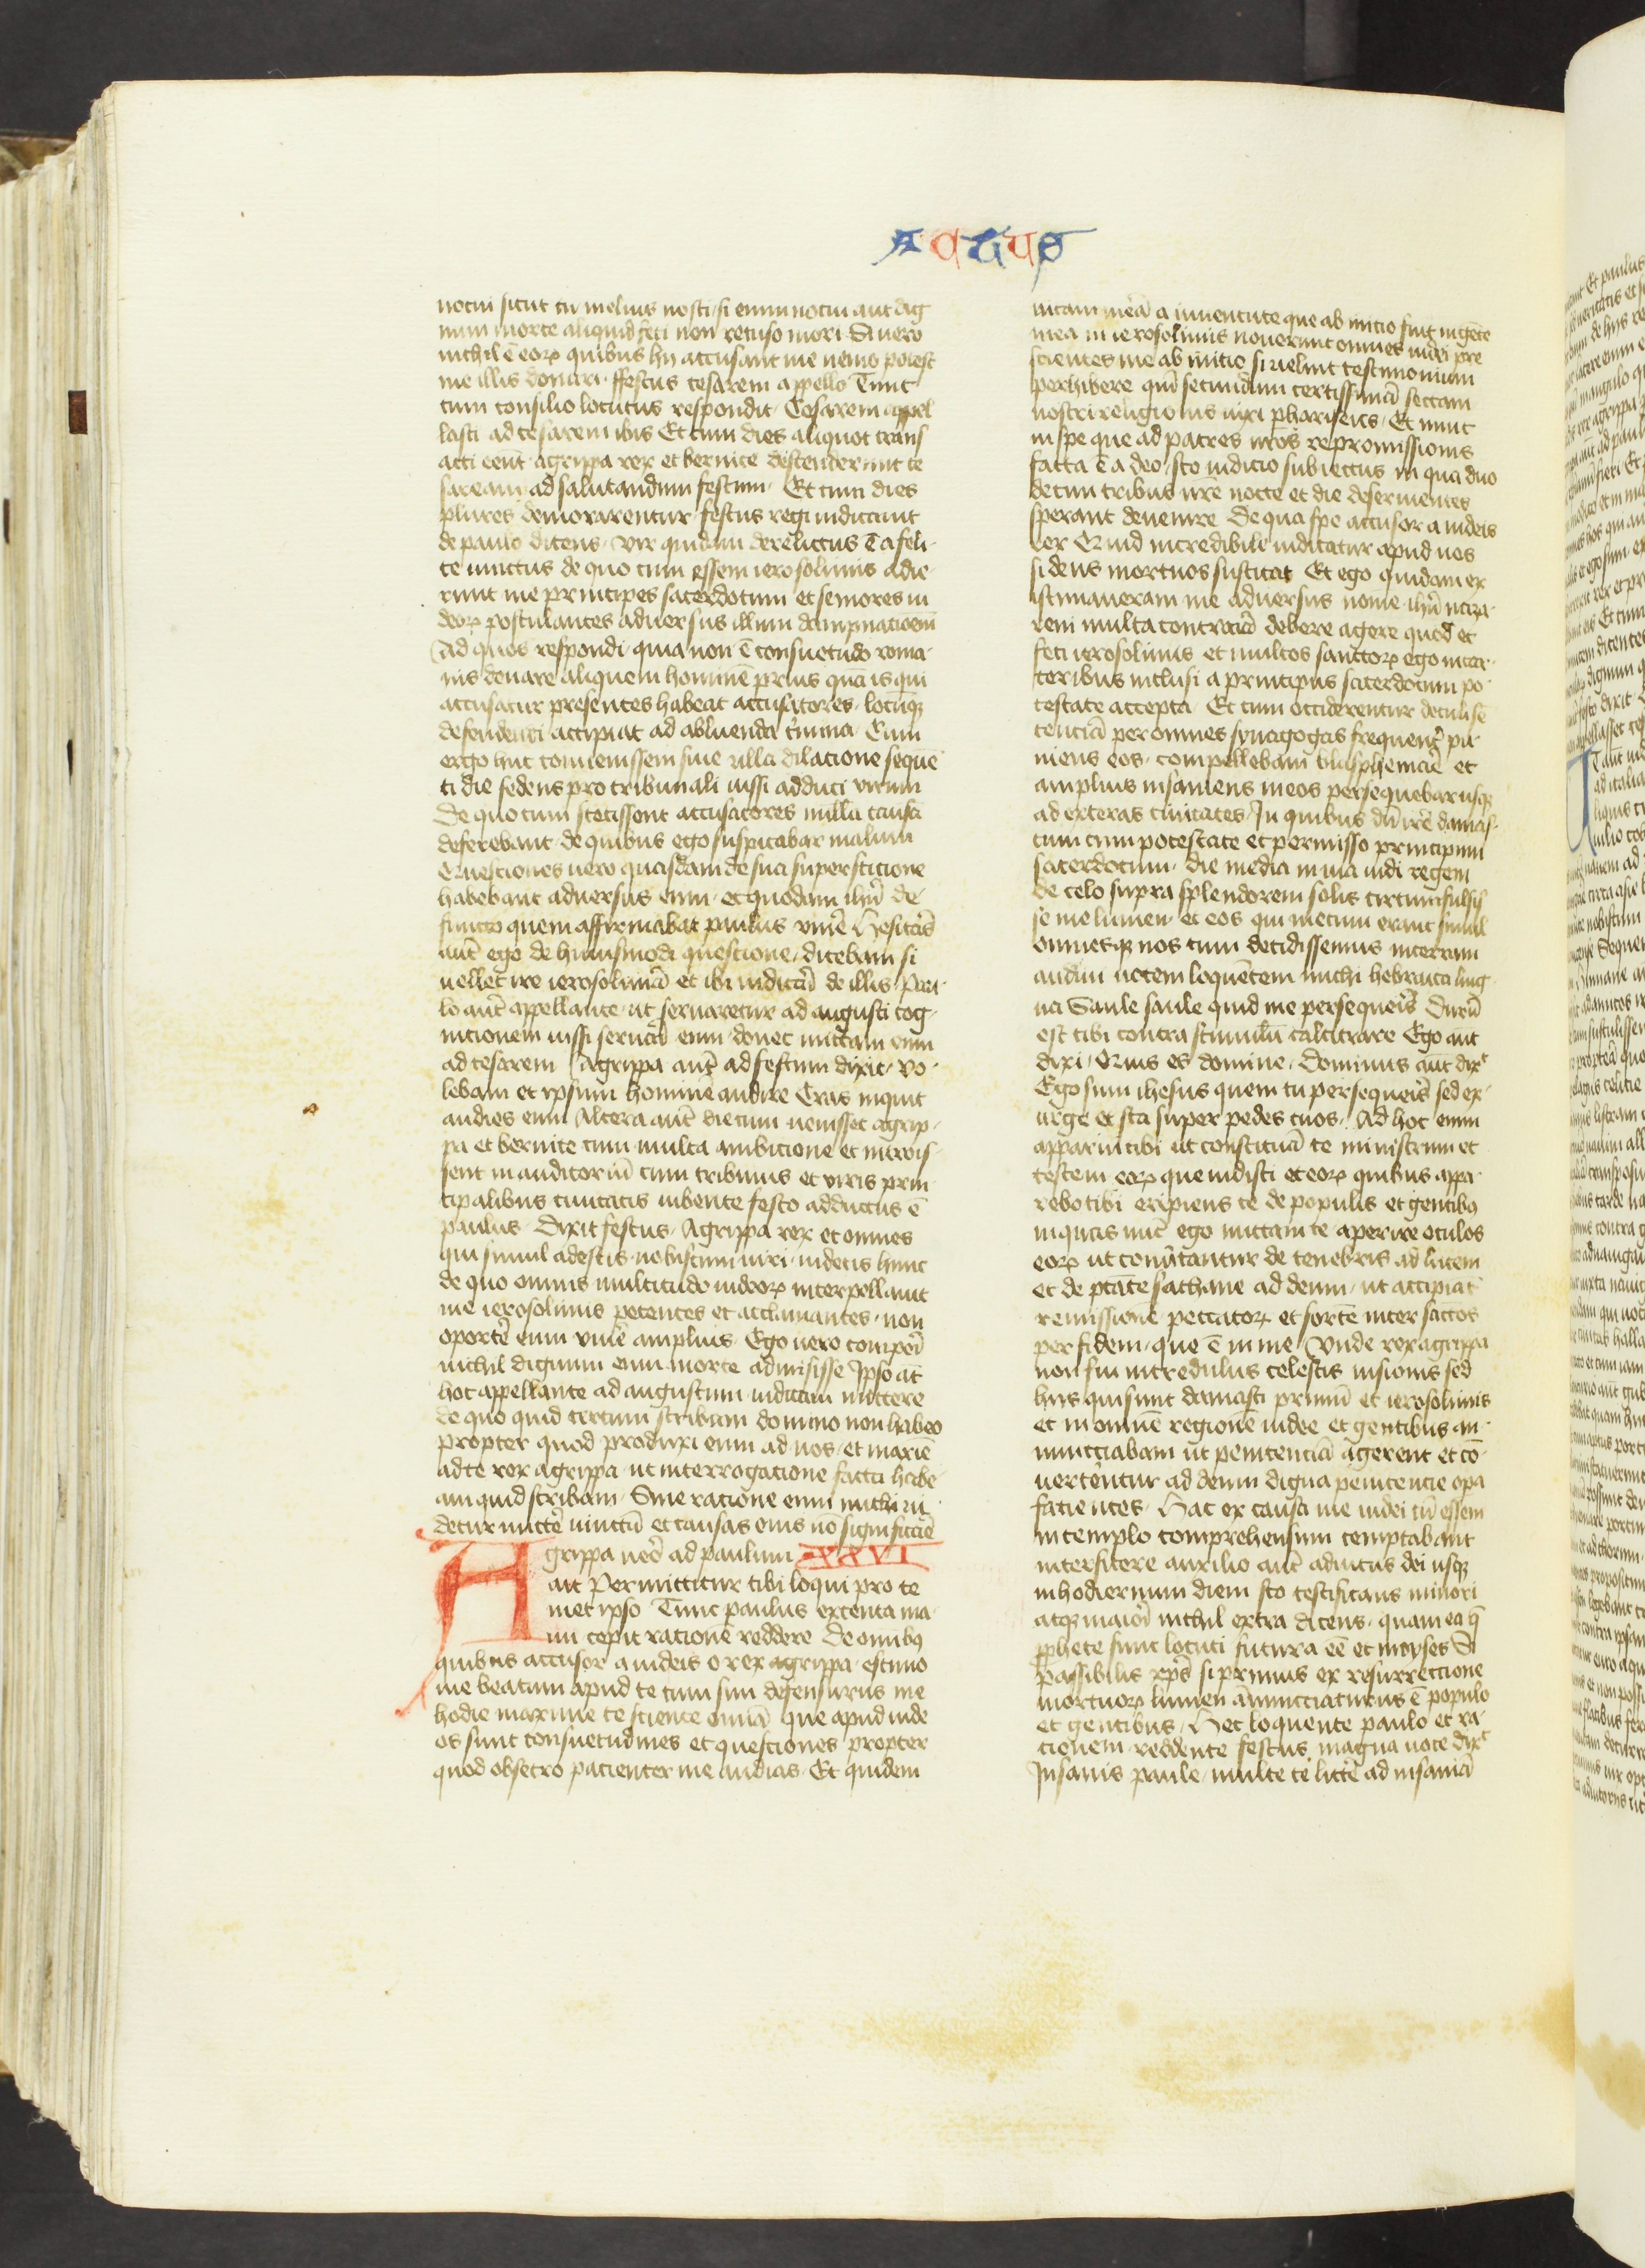 Actus
nocui sicut tu melius nosti / si enim nocui aut dig
num morte aliquid feci non recuso mori Si vero
nichil ē eoꝝ quibus hii accusant me nemo potest
me illis donari · ffestus cesarem appello Tunc
cum consilio locutus respondit Cesarem appel
lasti ad cesarem ibis Et cum dies aliquot trans
acti eent agrippa rex et bernice descenderunt ce
saream ad salutandum festum · Et cum dies
plures demorarentur festus regi indicauit
de paulo dicens · Vir quidam derelictus ē a feli
ce uinctus de quo cum essem ierosolimis adie
runt me principes sacerdotum et seniores iu
deoꝝ postulantes aduersus illum dampnacioem̄
Ad quos respondi quia non ē consuetudo roma
nis donare aliquem hominē prius quā is qui
accusatur presentes habeat accusatores · locūqꝫ
defendendi accipiat ad abluenda crimina Cum
ergo huc conuenissem sine ulla dilacione sequē
ti die sedens pro tribunali iussi adduci virum
De quo cum stetissent accusatores nulla causā
deferebant de quibus ego suspicabar malum
Questiones uero quasdam de sua supersticione
habebant aduersus eum · et quodam ihū de
functo quem affirmabat paulus viuē Hesitās
aut̄ ego de huiusmodi questione / dicebam si
uellet ire ierosolimā et ibi iudicari de illis Pau
lo aut̄ appellante · ut seruaretur ad augusti cog
nicionem iussi seruari eum donec mittam eum
ad cesarem Agrippa aut̄ ad festum dixit · Vo
lebam et ipsum hominē audire Cras inquit
audies eum Altera aut̄ die cum uenisset agrip
pa et bernice cum multa ambicione et introis
sent in auditoriū cum tribunis et viris prin
cipalibus ciuitatis iubente festo adductus ē
paulus · Dixit festus · Agrippa rex et omnes
qui simul adestis nobiscum uiri · uidetis hunc
de quo omnis multitudo iudeoꝝ interpellauit
me ierosolimis petentes et acclamantes · non
oportē eum viuē amplius Ego uero comperi
nichil dignum eum morte admisisse Ipso at̄
hoc appellante ad augustum iudicaui mittere
de quo quid certum scribam domino non habeo
propter quod produxi eum ad uos · et maxiē
ad te rex agrippa ut interrogatione facta habe
am quid scribam · Sine racione enim michi ui
detur mittē uinctū et causas eius nō significāre
Agrippa uero ad paulum XXVI
ait Permittitur tibi loqui pro te
met ipso Tunc paulus extenta ma
nu cepit racionē reddere De omībꝫ
quibus accusor a iudeis o rex agrippa · estimo
me beatum apud te cum sim defensurus me
hodie maxime te sciente omīa que apud iude
os sunt consuetudines et questiones propter
quod obsecro pacienter me audias · Et quidem
uitam meā a iuuentute que ab initio fuit in gēte
mea in ierosolimis nouerunt omnes iudei pre
scientes me ab initio si uelint testimonium
perhibere qm̄ secundum certissimā sectam
nostri religionis uixi phariseus · Et nunc
in spe que ad patres nr̄os repromissionis
facta ē a deo / sto iudicio subiectus in qua duo
decim tribus nr̄e nocte et die deseruientes
sperant deuenire De qua spe accusor a iudeis
rex Quid incredibile iudicatur apud uos
si deus mortuos suscitat Et ego quidam ex
istimaueram me aduersus nomē ihū naza
reni multa contrariā debere agere quod et
feci ierosolimis et multos sanctoꝝ ego incar
ceribus inclusi a principibus sacerdotum po
testate accepta Et cum occiderentur detuli sē
tenciā per omnes synagogas frequent̄ pu
niens eos · compellebam blasphemare et
amplius insaniens in eos persequebar usqꝫ
ad exteras ciuitates / In quibus dū irē damas
cum cum potestate et permisso principum
sacerdotum · die media in uia uidi regem
de celo supra splendorem solis circumfulsis
se me lumen et eos qui mecum erant simul
omnesqꝫ nos cum decidissemus in terram
audiui uocem loquētem michi hebraica ling
ua Saule saule quid me persequeris Durū
est tibi contra stimulū calcitrare Ego aut̄
dixi / Quis es domine · Dominus aut̄ dixᵗ
Ego sum ihesus quem tu persequeris sed ex
urge et sta super pedes tuos · Ad hoc enim
apparui tibi ut constituā te ministrum et
testem eoꝝ que uidisti et eoꝝ quibus appa
rebo tibi eripiens te de populis et gentibꝫ
in quas nūc ego mittam te aperire oculos
eoꝝ ut conūtantur de tenebris ad lucem
et de ptāte sathane ad deum / ut accipiat
remissionē peccatoꝝ et sortē inter sāctos
per fidem · que ē in me / Vnde rex agrippa
non fui incredulus celestis uisionis sed
hiis qui sunt damasci primū et ierosolimis
et in omnē regionē iudee et gentibus an
nunciabam ut penitenciā agerent et cō
uerterentur ad deum digna penitencie opā
facientes · Hac ex causa me iudei cū essem
in templo comprehensum temptabant
interficere auxilio aut̄ adiutus dei usqꝫ
in hodiernum diem sto testificans minori
atqꝫ maiori nichil extra dicens · quam ea q̄
ꝓphete sunt locuti futura eē et moyses Si
passibilis xp̄s si primus ex resurrectione
mortuoꝝ lumen annunciaturus ē populo
et gentibus / Hec loquente paulo et ra
cionem reddente festus magna uoce dixᵗ
Insanis paule / multe te littē ad insaniā